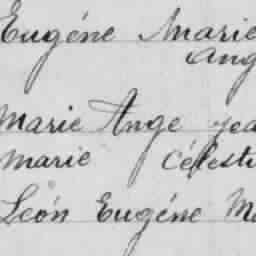 Eugéne Marie
Ang
Marie Ange Jea
Marie Célest
Léon Eugéne Ma